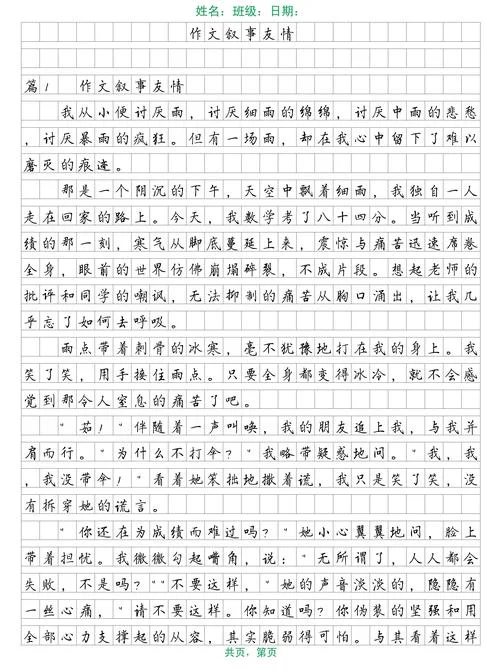 姓名：班级：日期：
作文叙事友情
篇1 作文叙事友情
我从小便讨厌雨，讨厌细雨的绵绵，讨厌中雨的悲愁
，讨厌暴雨的疯狂。但有一场雨，却在我心中留下了难以
磨灭的痕迹。
那是一个阴沉的下午，天空中飘着细雨，我独自一人
走在回家的路上。今天，我数学考了八十四分。当听到成
绩的那一刻，寒气从脚底蔓延上来，震惊与痛苦迅速席卷
全身，眼前的世界仿佛崩塌碎裂，不成片段。想起老师的
批评和同学的嘲讽，无法抑制的痛苦从胸口涌出，让我几
乎忘了如何去呼吸。
雨点带着刺骨的冰寒，毫不犹豫地打在我的身上。我
笑了笑，用手接住雨点。只要全身都变得冰冷，就不会感
觉到那令人窒息的痛苦了吧。
“茹！”伴随着一声叫唤，我的朋友追上我，与我并
肩而行。“为什么不打伞？”我略带疑惑地问。“我，我
，我没带伞！”看着她笨拙地撒着谎，我只是笑了笑，没
有拆穿她的谎言。
“你还在为成绩而难过吗？”她小心翼翼地问，脸上
带着担忧。我微微勾起嘴角，说：“无所谓了，人人都会
失败，不是吗？”“不要这样，”她的声音淡淡的，隐隐有
一丝心痛，“请不要这样。你知道吗？你伪装的坚强和用
全部心力支撑起的从容，其实脆弱得可怕。与其看着这样
共页，第页